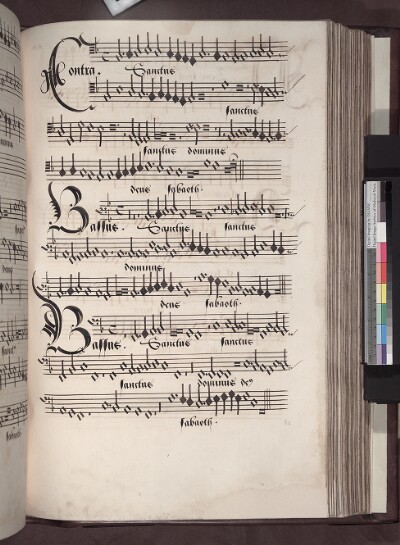 Contra. Sanctus
sanctus
sanctus dominus
deus sabaoth.
Bassus. Sanctus sanctus
dominus
deus sabaoth.
Bassus. Sanctus sanctus
sanctus dominus de9
sabaoth.